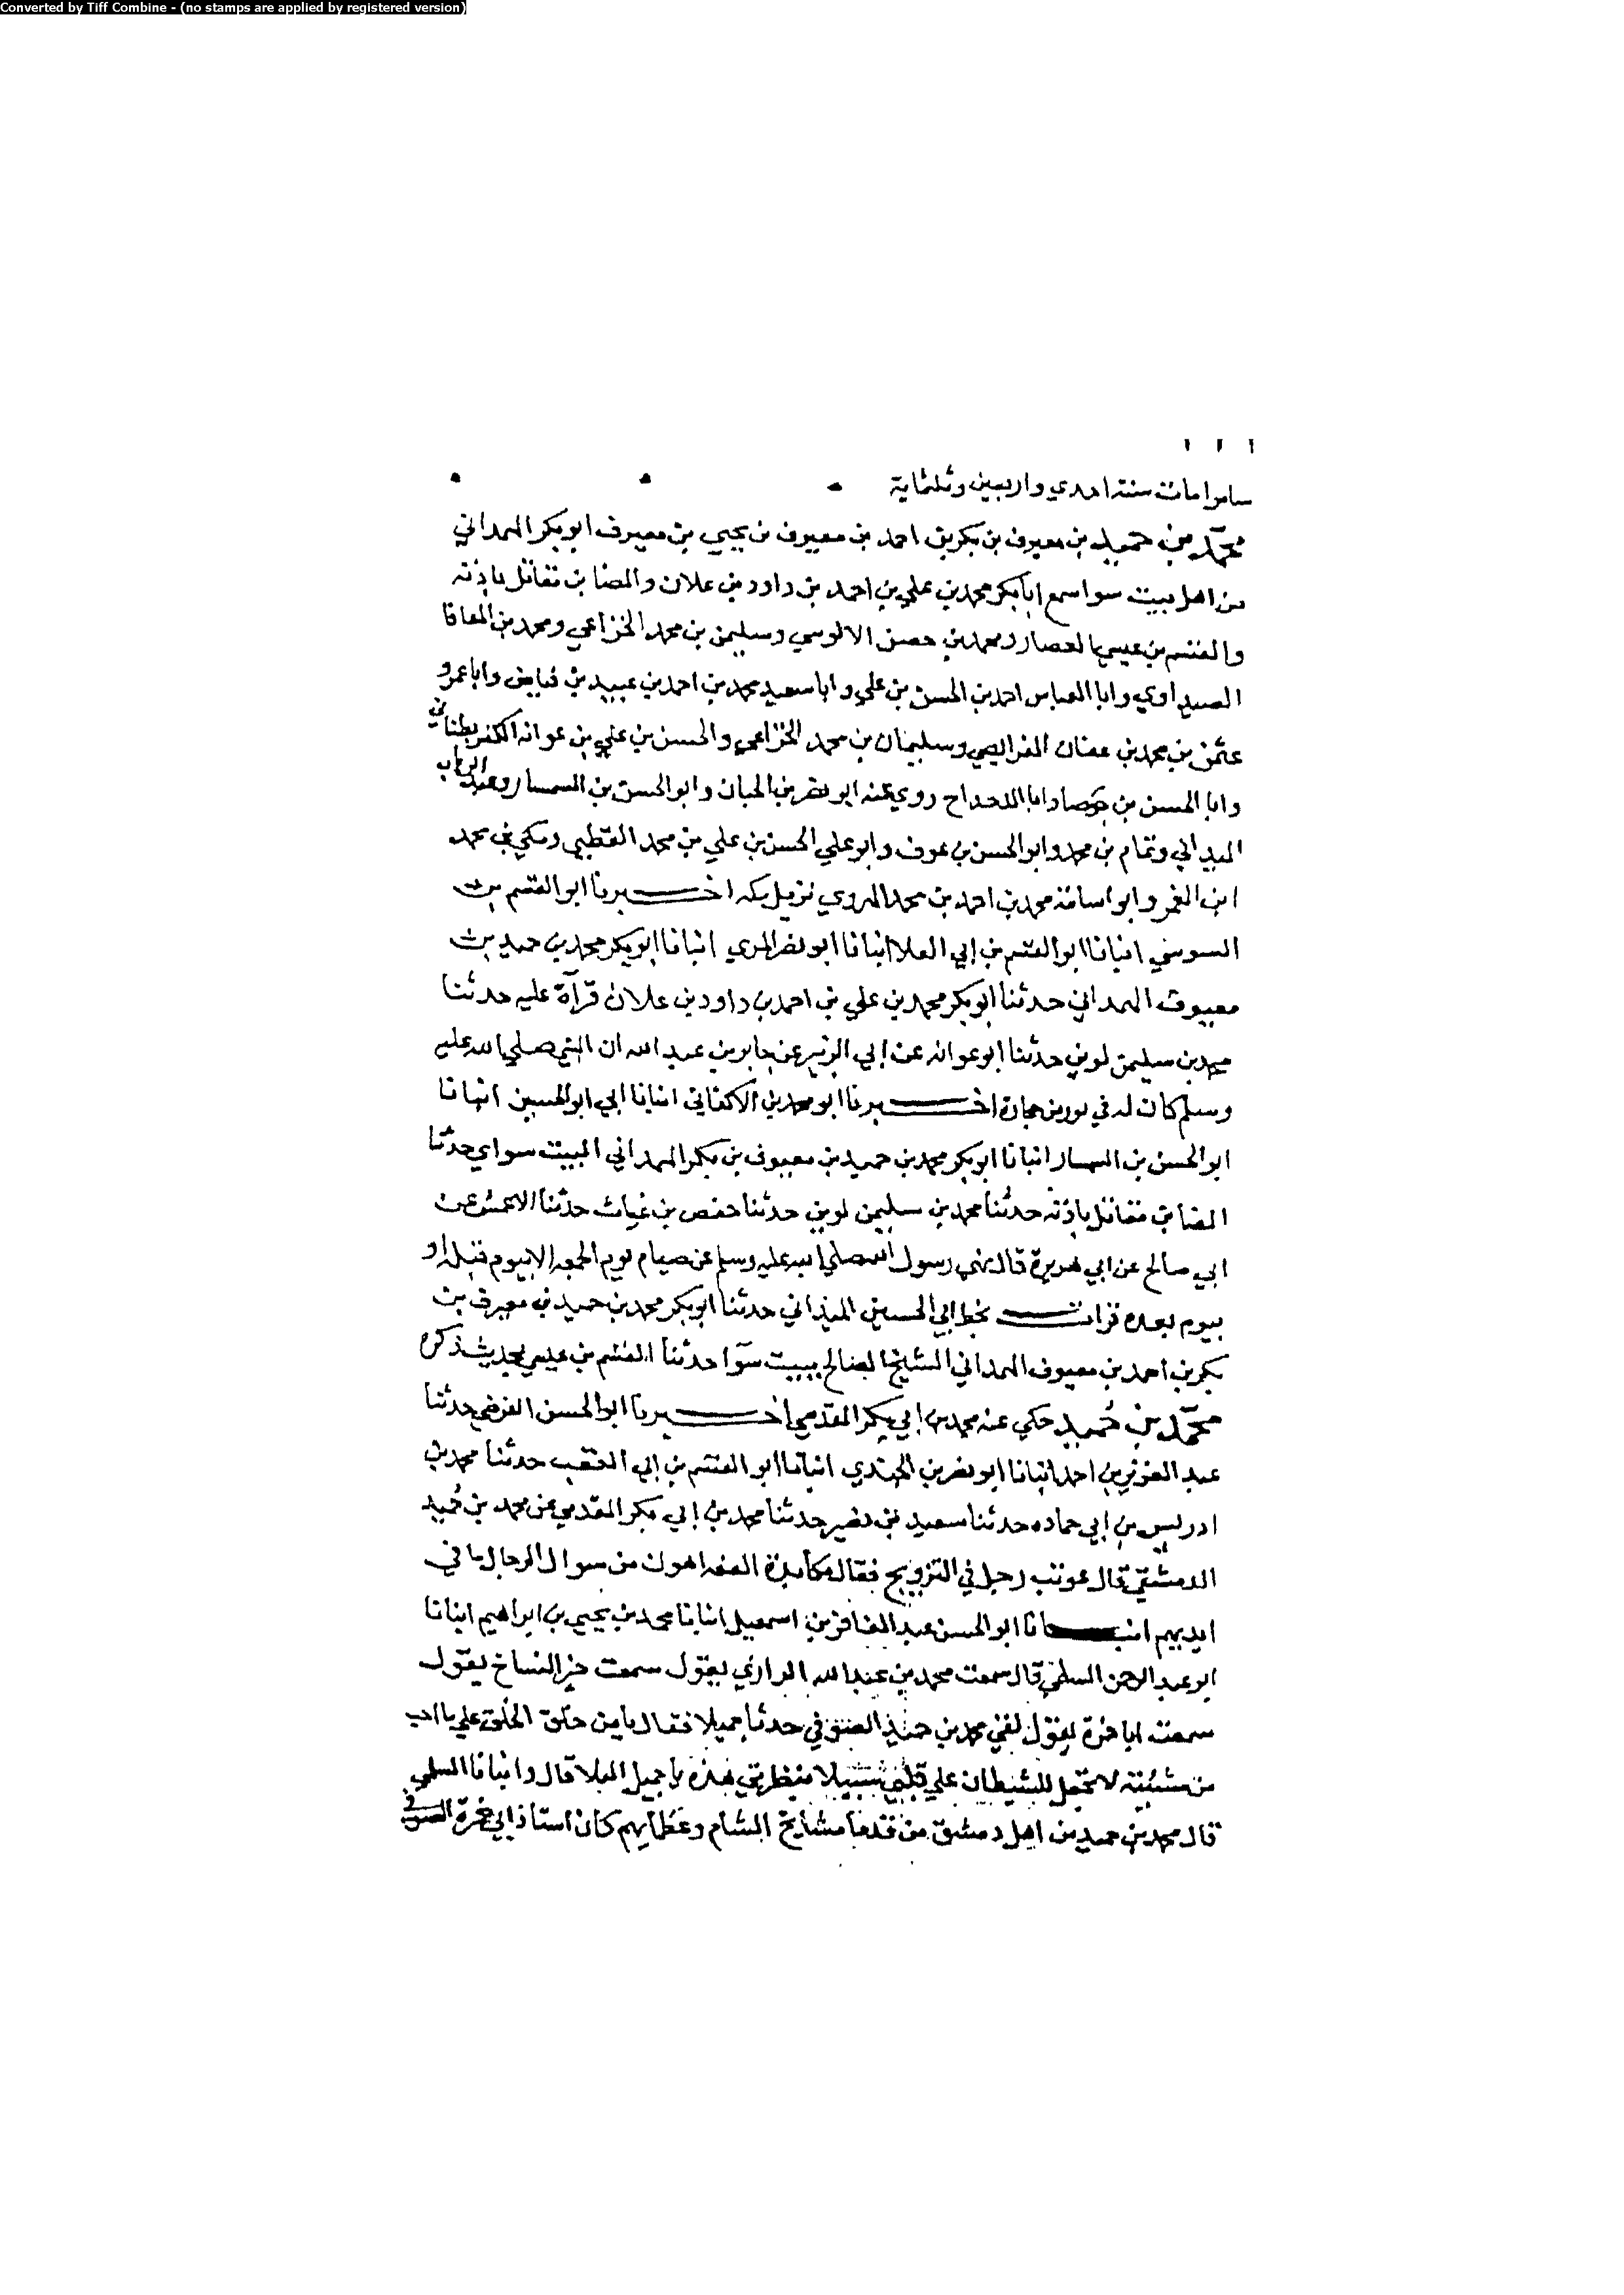 Converted by Tiff Combine - (no stamps are applied by registered version)
١١١
سامرا مات سنة احدي واربعين وثلثماية
محمد بن حميد بن معيوف بن بكر بن احمد بن معيوف بن يحيي بن معيوف ابو بكر الهمداني
من اهل بيت سوا سمع ابا بكر محمد بن علي بن احمد بن داود بن علان والمضا بن مقاتل باذنه
والقسم بن عيسي العصار ومحمد بن حصن الالوسي وسليمن بن محمد الخزاعي ومحمد بن المعافا
الصيداوي وابا العباس احمد بن الحسن بن علي وابا سعيد محمد بن احمد بن عبيد بن فياض وابا عمرو
عثمن بن محمد بن عفان الفرايضي وسليمان بن محمد الخزاعي والحسن بن علي بن عوانه الكفربطناني
وابا الحسن بن جوصا وابا الدحداح روي عنه ابو نصر بن الجبان وابو الحسن بن السمسار وعبد الوهاب
الميداني وتمام بن محمد وابو الحسن بن عوف وابو علي الحسن بن علي بن محمد القطبي ومكي بن محمد
ابن الغمر وابو اسامة محمد بن احمد بن محمد الهروي نزيل مكه اخبرنا ابو القسم بن
السوسي انبانا ابو القسم بن ابي العلا انبانا ابو نصر المري انبانا ابو بكر محمد بن حميد بن
معيوف الهمداني حدثنا ابو بكر محمد بن علي بن احمد بن داود بن علان قرآة عليه حدثنا
محمد بن سليمن لوين حدثنا ابو عوانه عن ابي الزبير عن جابر بن عبد الله ان النبي صلي الله عليه
وسلم كان له في تور من حجارة اخبرنا ابو محمد بن الاكفاني انبانا ابي ابو الحسين انبانا
ابو الحسن بن السمسار انبانا ابو بكر محمد بن حميد بن معيوف بن بكر الهمداني البيت سواي حدثنا
المضا بن مقاتل باذنه حدثنا محمد بن سليمن لوين حدثنا حفص بن غياث حدثنا الاعمش عن
ابي صالح عن ابي هريرة قال نهي رسول الله صلي الله عليه وسلم عن صيام يوم الجمعه الا بيوم قبله او
بيوم بعده قرات بخط ابي الحسين الميداني حدثنا ابو بكر محمد بن حميد بن معيوف بن
بكر بن احمد بن معيوف الهمداني الشيخ الصالح ببيت سوآ حدثنا القسم بن عيسي بحديث ذكره
محمد بن حُميد حكي عنه محمد بن ابي بكر المقدمي اخبرنا ابو الحسن الفرضي حدثنا
عبد العزيز بن احمد انبانا ابو نصر بن الجندي انبانا ابو القسم بن ابي العقب حدثنا محمد بن
ادريس بن ابي حماده حدثنا سعيد بن نصير حدثنا محمد بن ابي بكر المقدمي عن محمد بن حُميد
الدمشقي قال عوتب رجل في التزويج فقال مكابدة العفه اهون من سوال الرجال ما في
ايديهم انبانا ابو الحسن عبد الغافر بن اسمعيل انبانا محمد بن يحيي بن ابراهيم انبانا
ابو عبد الرحمن السلمي قال سمعت محمد بن عبد الله الرازي يقول سمعت خير النساخ يقول
سمعت ابا حمزة يقول لقني محمد بن حميد الصوفي حدثا جميلا فقال يا من خلق الخلق علي ما احب
من مشيئته لا تجعل للشيطان علي قلبي سبيلا منظرتي هذه يا جميل البلا قال وانبانا السلمي
قال محمد بن حميد من اهل دمشق من قدما مشايخ الشام وعظمايهم كان استاذ ابي حمزة الصوفي